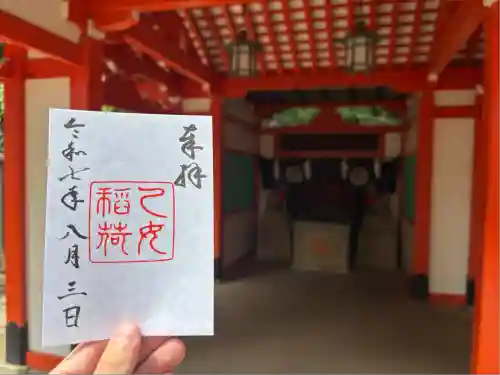 奉拝
乙女
稲荷
令和七年八月三日